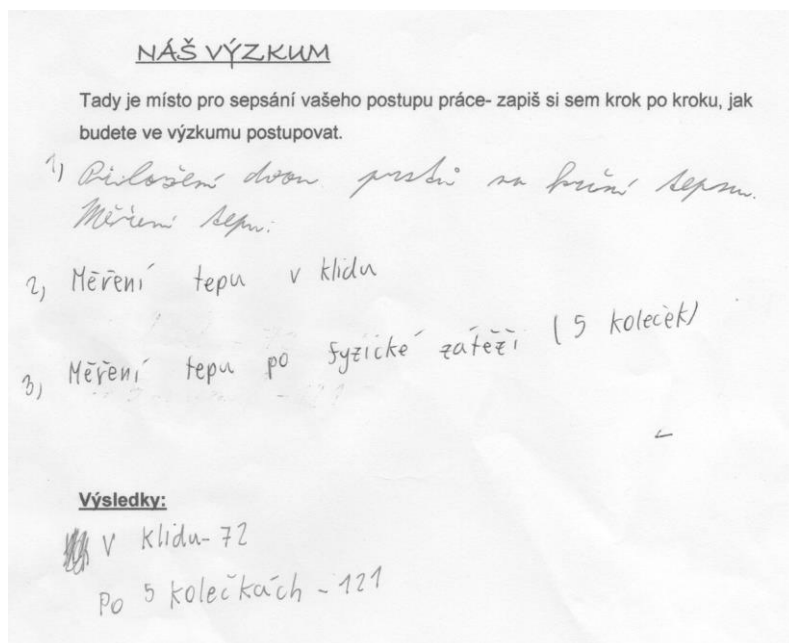 NÁŠ VÝZKUM
Tady je místo pro sepsání vašeho postupu práce- zapiš si sem krok po kroku, jak
budete ve výzkumu postupovat.
1) Přiložení dvou prstů na krční tepnu.
Měření tepu.
2, Měření tepu v klidu
3, Měření tepu po fyzické zátěži (5 koleček)
Výsledky:
V klidu- 72
Po 5 kolečkách - 121